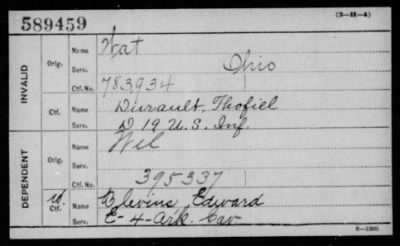 589459
(3—H—4)
INVALID
Orig.
Name
Wat
Serv.
Ohio
Ctf. No.
783934
Ctf.
Name
Durault, Thofiel
Serv.
D 19 U.S. Inf.
DEPENDENT
Orig.
Name
Wel
Serv.
Ctf. No.
395337
W. Ctf.
Name
Blevins, Edward
Serv.
E-4-Ark. Cav
6—1380